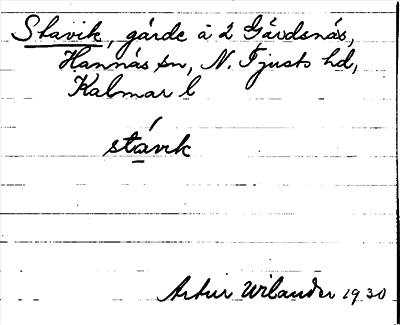 Stavik, gärde å 2 Gärdsnäs,
Hannäs sn, N. Tjusts hd,
Kalmar l
stávik
Artur Wilander 1930